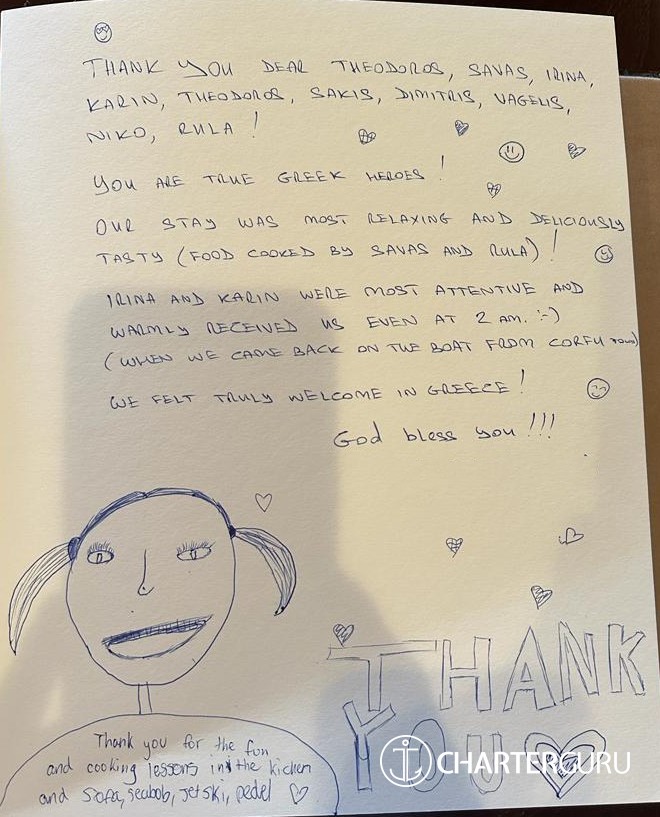 THANK YOU DEAR THEODOROS, SAVAS, IRINA,
KARIN, THEODOROS, SAKIS, DIMITRIS, VAGELIS,
NIKO, RULA!
YOU ARE TRUE GREEK HEROES!
OUR STAY WAS MOST RELAXING AND DELICIOUSLY
TASTY (FOOD COOKED BY SAVAS AND RULA)!
IRINA AND KARIN WERE MOST ATTENTIVE AND
WARMLY RECEIVED US EVEN AT 2 AM. :-)
(WHEN WE CAME BACK ON THE BOAT FROM CORFU TOWN)
WE FELT TRULY WELCOME IN GREECE!
God bless you!!!
Thank you for the fun
and cooking lessons in the kichen
and sofa, seabob, jetski, pedel
THANK
YOU
CHARTERGURU